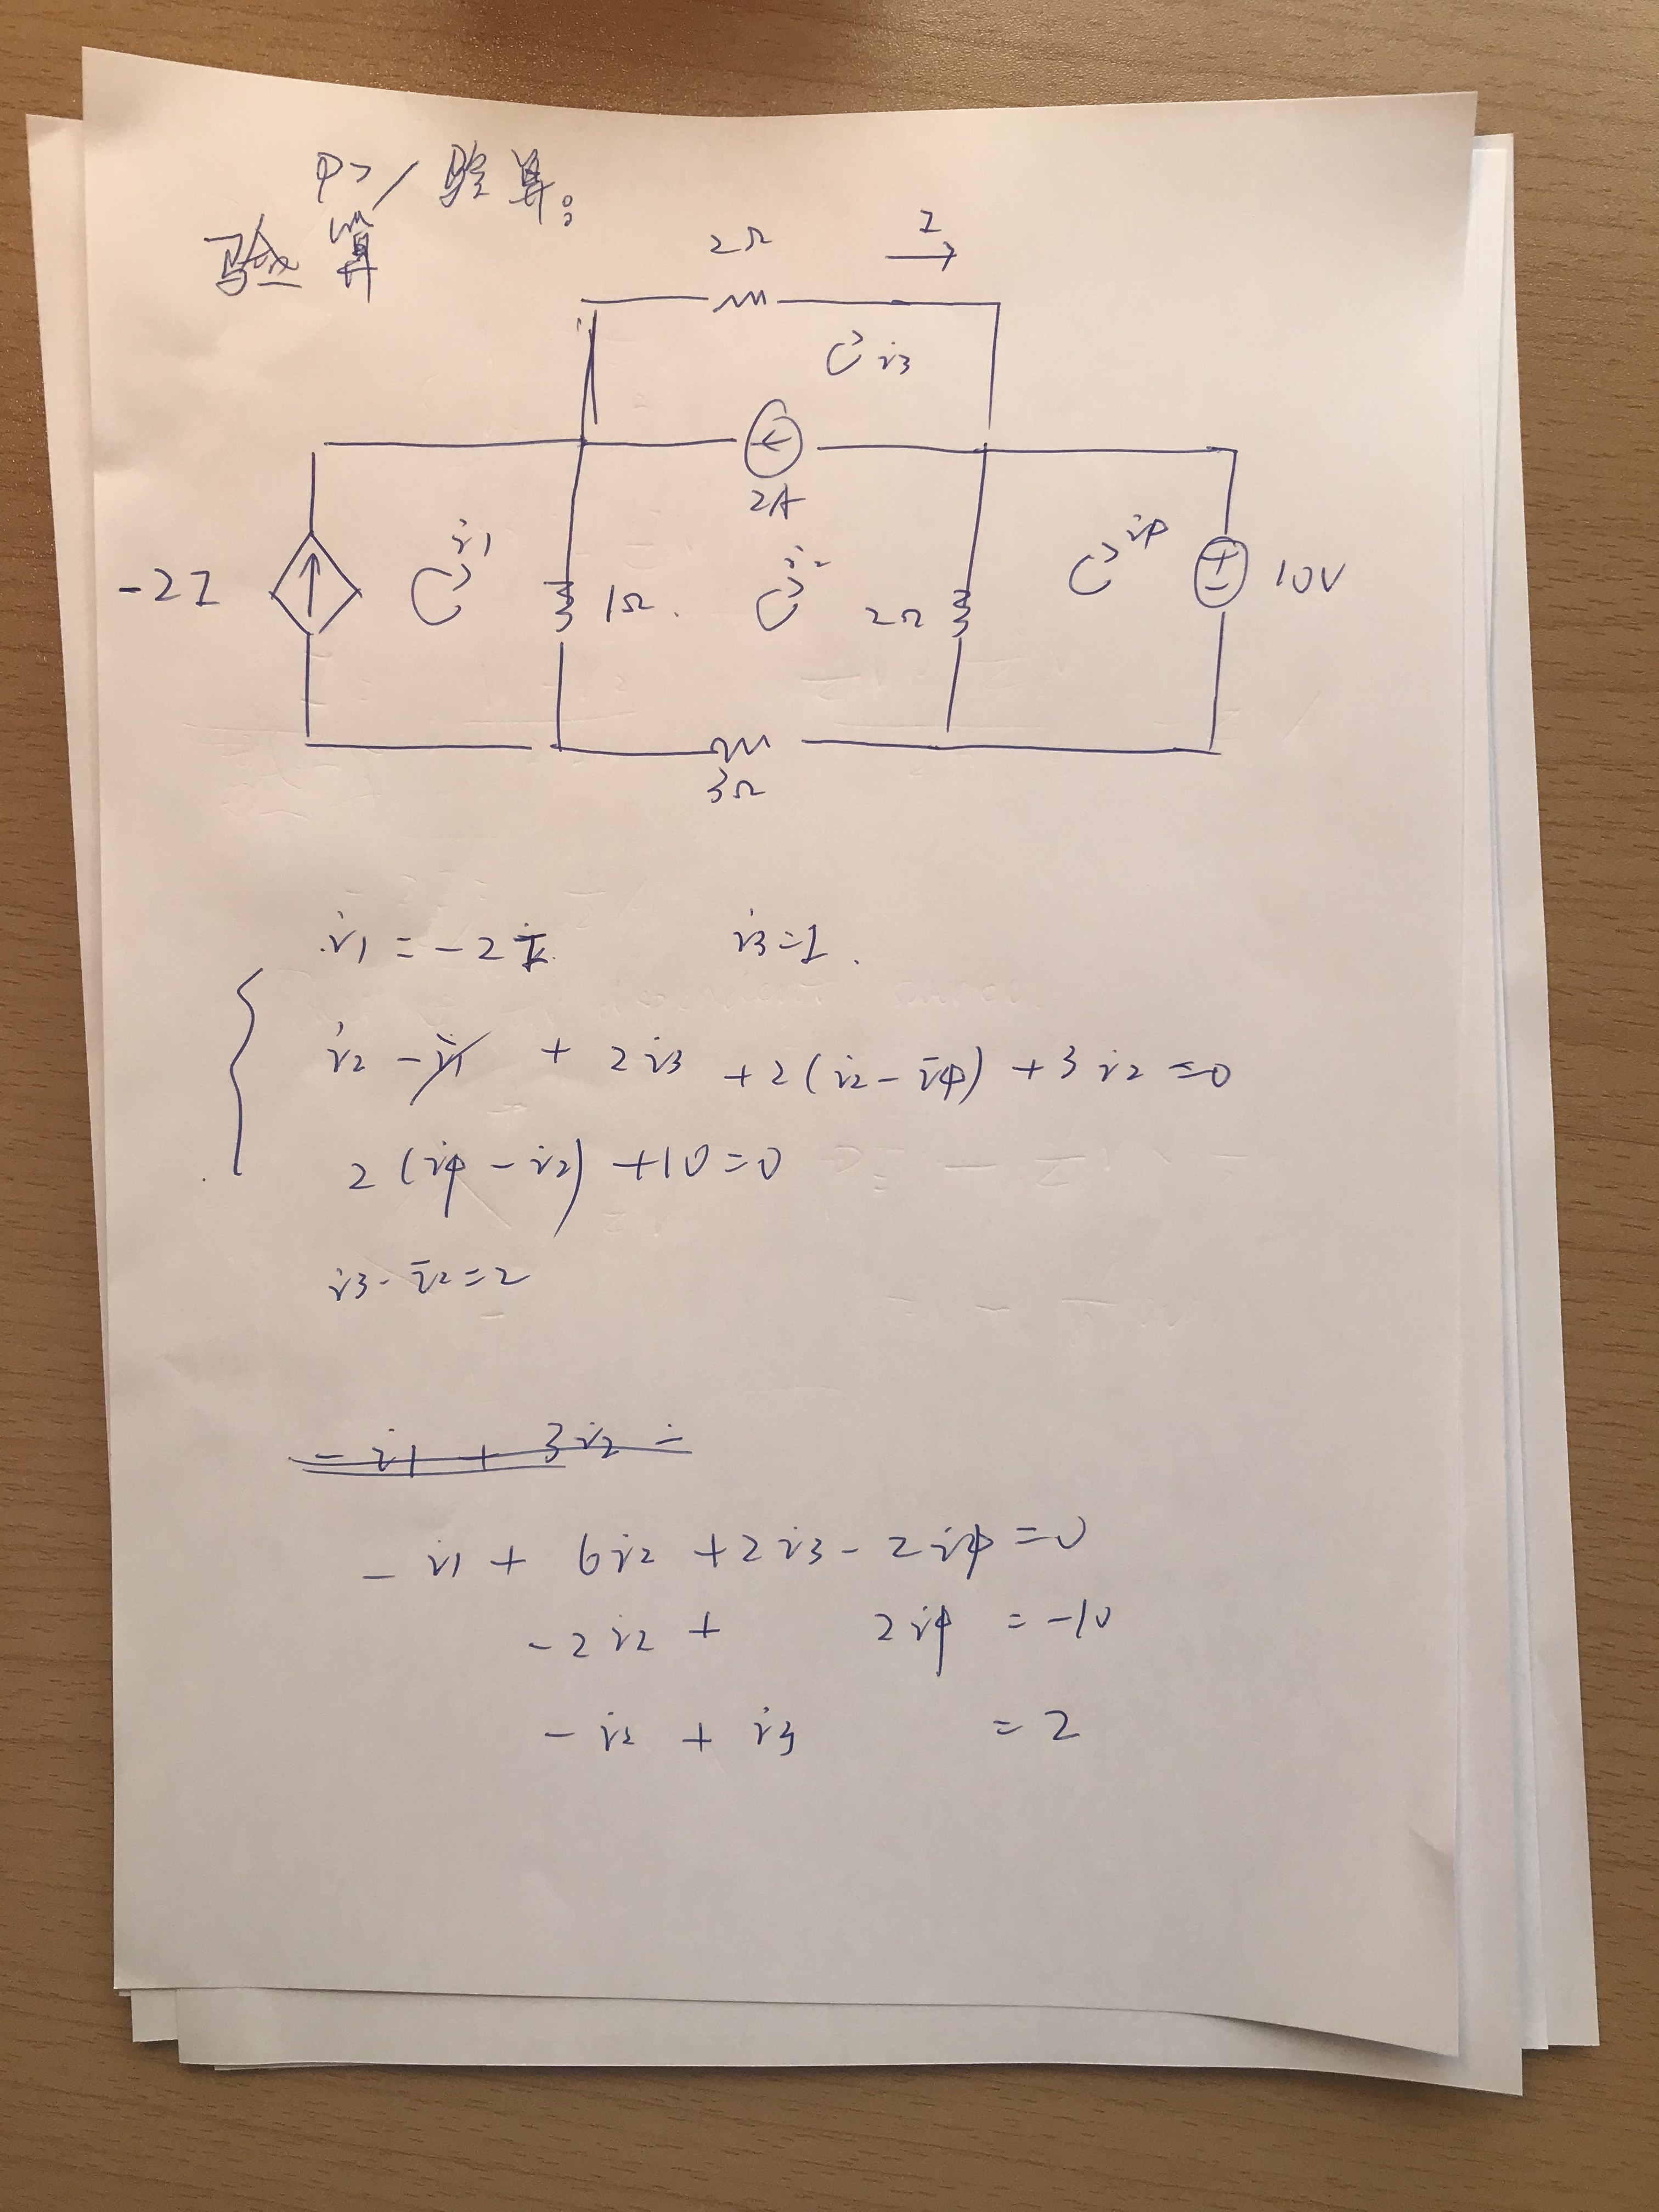 P21 验算:
验算
2Ω I
i3
2A
-2I i1 1Ω. i2 2Ω i4 10V
3Ω
i1 = -2I i3=I.
i2 - i1 + 2i3 +2(i2-i4) +3i2 =0
2(i4-i2) +10=0
i3-i2=2
-i1 + 3i2 =
-i1 + 6i2 +2i3 - 2i4 =0
-2i2 + 2i4 = -10
-i2 + i3 = 2